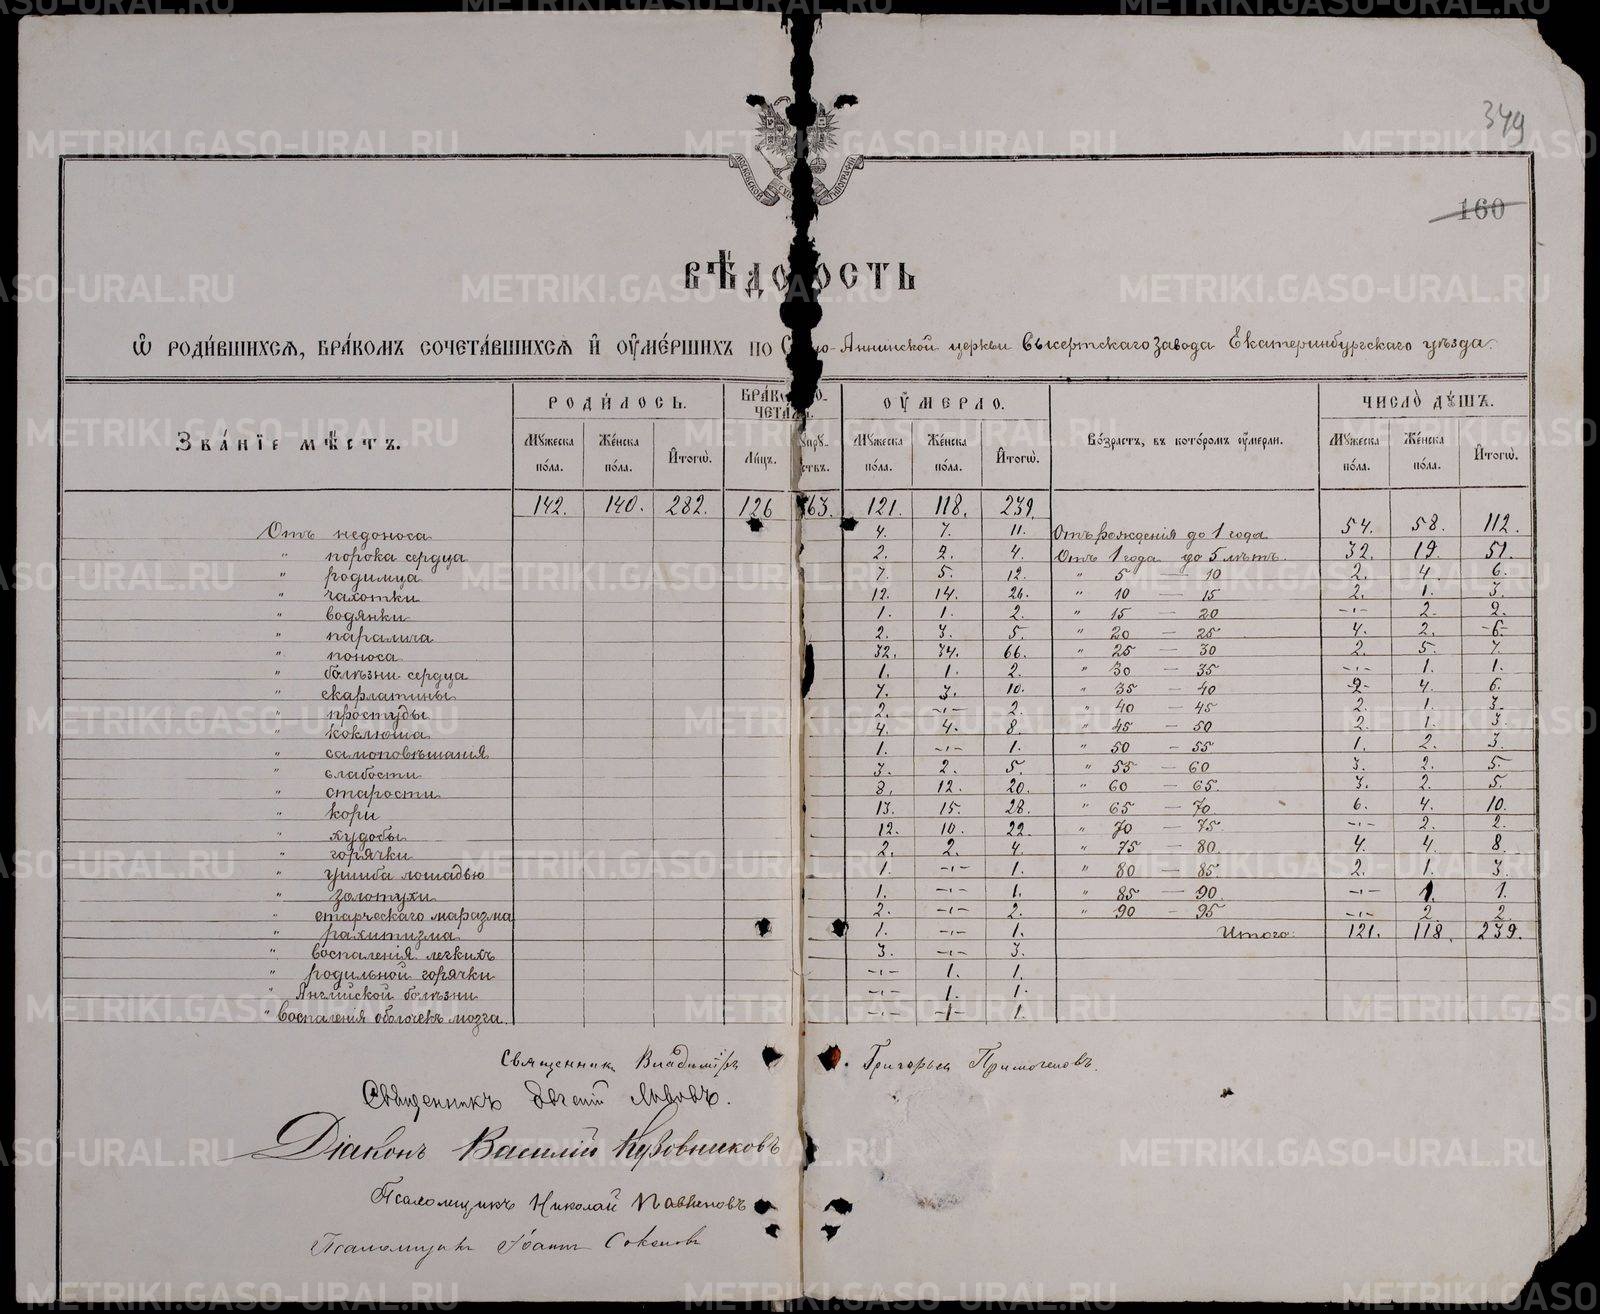 349
160
ВѢДОМОСТЬ
Ѡ РОДИ́ВШИХСѦ, БРА́КОМЪ СОЧЕТА́ВШИХСѦ И҆ ОУ҆МЕ́РШИХЪ ПО -Аннинской церкви Сысертскаго завода Екатеринбургскаго уѣзда.
ЗВА́НІЕ МѢ́СТЪ. РОДИ́ЛОСЬ. БРА́КО СО- ЧЕТАЛ. ОУ҆МЕРЛО. ЧИСЛО̀ ДꙊ́ШЪ.
Мꙋжеска по́ла. Же́нска по́ла. И҆тогѡ̀. Ли́цъ. Мꙋжеска по́ла. Же́нска по́ла. И҆тогѡ̀. Во́зрастъ, въ кото́ромъ оу҆мерли. Мꙋжеска по́ла. Же́нска по́ла. И҆тогѡ̀.
142. 140. 282. 126 63. 121. 118. 239.
Отъ недоноса 4. 7. 11. Отъ рожденія до 1 года 54. 58. 112.
" порока сердца 2. 2. 4. Отъ 1 года до 5 лѣтъ. 32. 19. 51.
" родимца 7. 5. 12. " 5 — 10 2. 4. 6.
" чахотки 12. 14. 26. " 10 — 15 2. 1. 3.
" водянки 1. 1. 2. " 15 — 20 -"- 2. 2.
" паралича 2. 3. 5. " 20 — 25 4. 2. 6.
" поноса 32. 34. 66. " 25 — 30 2. 5. 7.
" болѣзни сердца 1. 1. 2. " 30 — 35 -"- 1. 1.
" скарлатины 7. 3. 10. " 35 — 40 2. 4. 6.
" простуды 2. -"- 2. " 40 — 45 2. 1. 3.
" коклюша 4. 4. 8. " 45 — 50 2. 1. 3.
" самоповѣшанія 1. -"- 1. " 50 — 55 1. 2. 3.
" слабости 3. 2. 5. " 55 — 60 3. 2. 5.
" старости 8. 12. 20. " 60 — 65. 3. 2. 5.
" кори 13. 15. 28. " 65 — 70 6. 4. 10.
" худобы 12. 10. 22. " 70 — 75. -"- 2. 2.
" горячки 2. 2. 4. " 75 — 80. 4. 4. 8.
" ушиба лошадью 1. -"- 1. " 80 — 85. 2. 1. 3.
" золотухи 1. -"- 1. " 85 — 90. -"- 1. 1.
" старческаго маразма 2. -"- 2. " 90 — 95 -"- 2. 2.
" рахитизма 1. -"- 1. Итого: 121. 118. 239.
" воспаленія легкихъ 3. -"- 3.
" родильной горячки -"- 1. 1.
" Англійской болѣзни -"- 1. 1.
" Воспаленія оболочекъ мозга. -"- 1 1.
Священникъ Владиміръ Григорьевъ Примогеновъ.
Священникъ Евгеній Львовъ.
Діаконъ Василій Кузовниковъ
Псаломщикъ Николай
Псаломщикъ Іоаннъ
METRIKI.GASO-URAL.RU